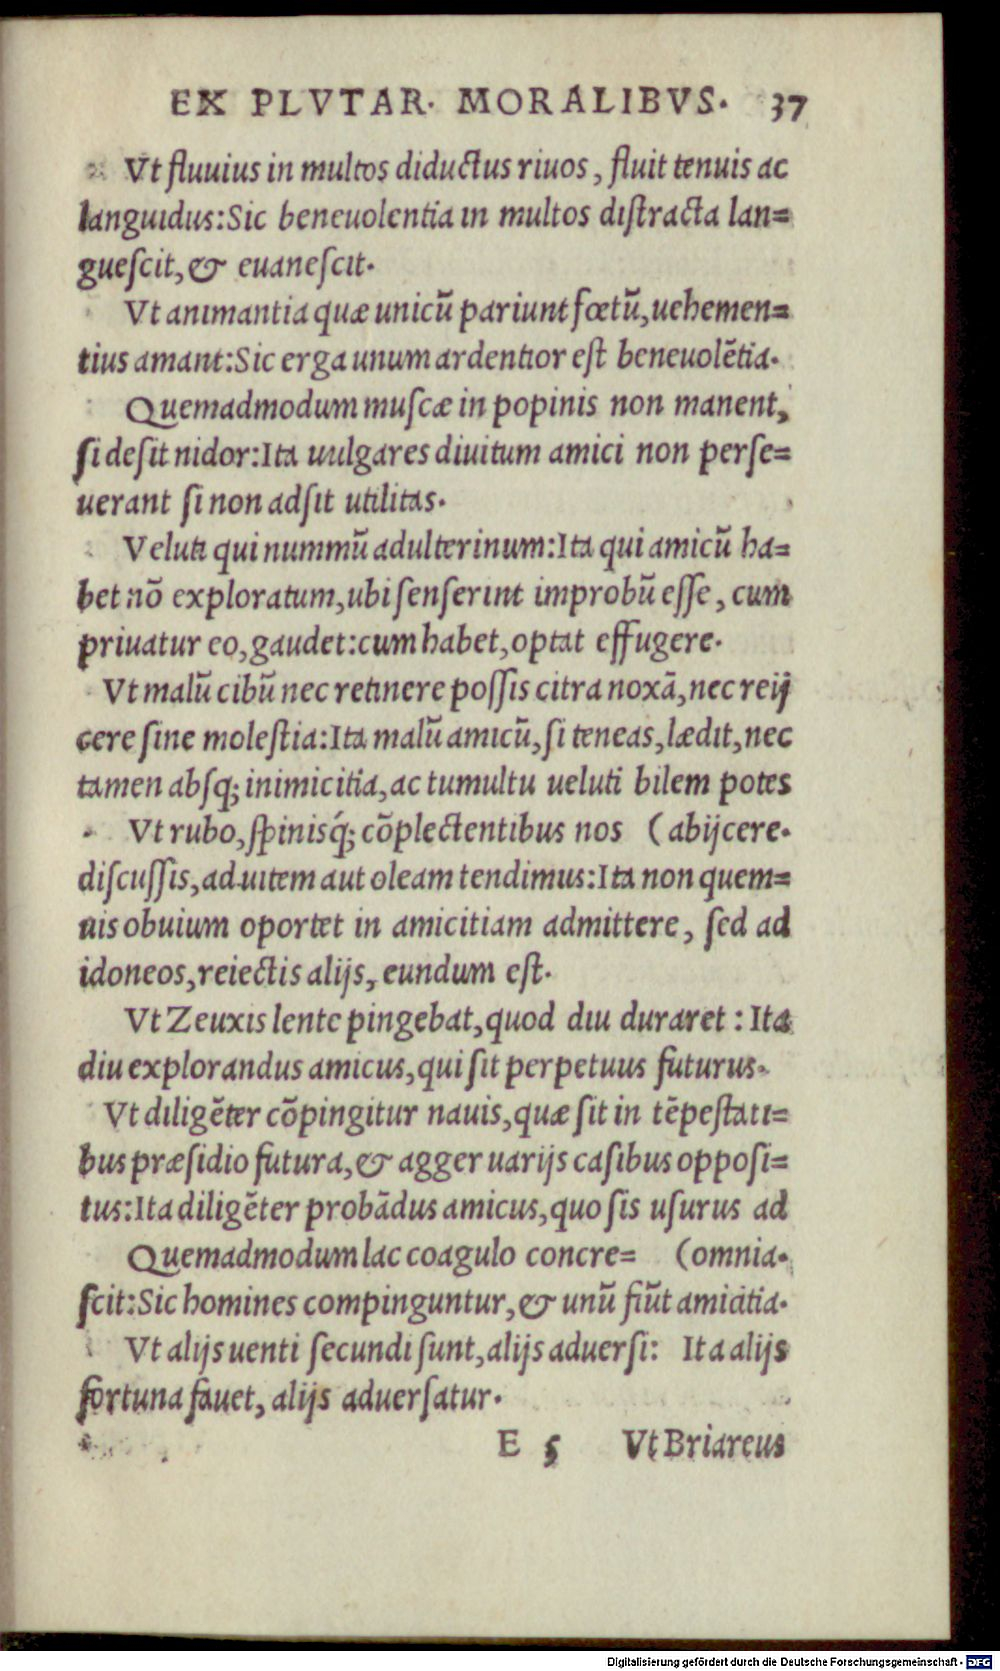 EX PLVTAR. MORALIBVS. 37
Vt fluuius in multos diductus riuos, fluit tenuis ac
languidus:Sic beneuolentia in multos distracta lan=
guescit,& euanescit.
Vt animantia quæ unicũ pariunt fœtũ,uehemen=
tius amant:Sic erga unum ardentior est beneuolẽtia.
Quemadmodum muscæ in popinis non manent,
si desit nidor:Ita uulgares diuitum amici non perse=
uerant si non adsit utilitas.
Veluti qui nummũ adulterinum:Ita qui amicũ ha=
bet nõ exploratum,ubi senserint improbũ esse, cum
priuatur eo,gaudet:cum habet,optat effugere.
Vt malũ cibũ nec retinere possis citra noxã,nec reij
cere sine molestia:Ita malũ amicũ,si teneas,lædit,nec
tamen absq; inimicitia,ac tumultu ueluti bilem potes
Vt rubo,spinisq́; cõplectentibus nos (abijcere.
discussis,ad uitem aut oleam tendimus:Ita non quem=
uis obuium oportet in amicitiam admittere, sed ad
idoneos,reiectis alijs, eundum est.
Vt Zeuxis lente pingebat,quod diu duraret : Ita
diu explorandus amicus,qui sit perpetuus futurus.
Vt diligẽter cõpingitur nauis,quæ sit in tẽpestati=
bus præsidio futura,& agger uarijs casibus opposi=
tus:Ita diligẽter probãdus amicus,quo sis usurus ad
Quemadmodum lac coagulo concre= (omnia.
scit:Sic homines compinguntur,& unũ fiũt amicitia.
Vt alijs uenti secundi sunt,alijs aduersi: Ita alijs
fortuna fauet, alijs aduersatur.
E 5 Vt Briareus
Digitalisierung gefördert durch die Deutsche Forschungsgemeinschaft - DFG